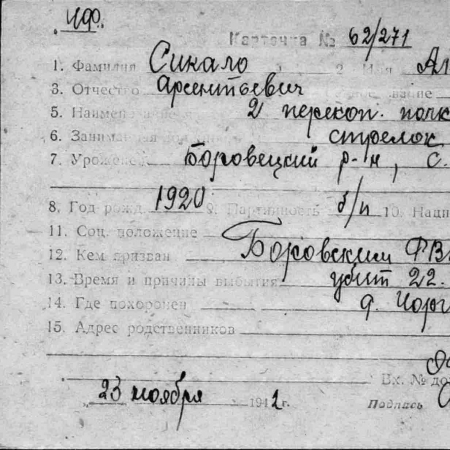 Карточка № 62/271
1. Фамилия Сикало 2. Имя Ал
3. Отчество Арсентьевич
5. Наимен 2 перекоп. полк
6. Занима стрелок
7. Урожен Боровецкий р-н, с.
8. Год рожд. 1920 9. Партийность б/п 10. Нац
11. Соц. положение
12. Кем призван Боровским РВ
13. Время и причины выбытия убит 22.
14. Где похоронен д.
15. Адрес родственников
Вх. № до
23 ноября 1942 г. Подпись